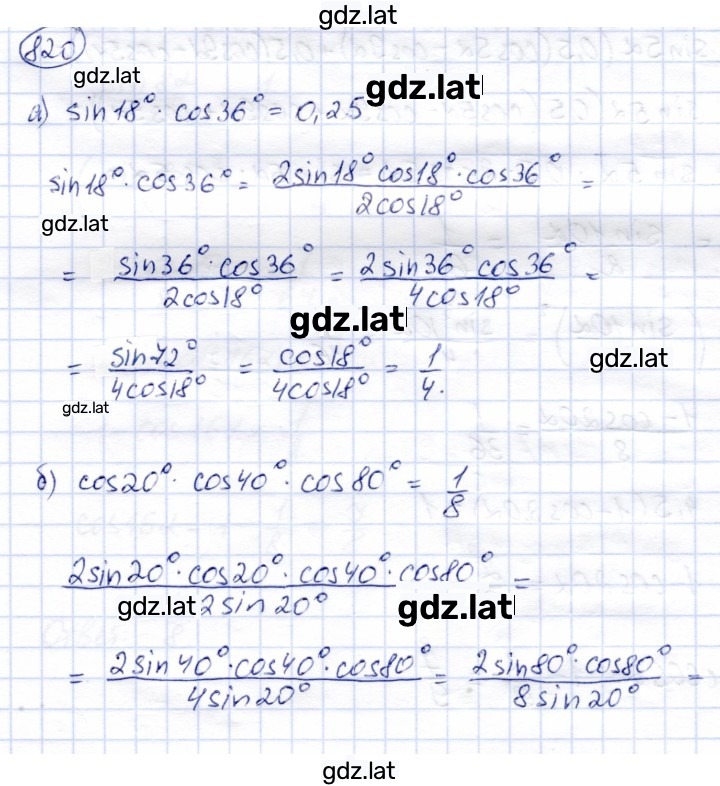 gdz.lat
820
gdz.lat
gdz.lat
а) sin18° · cos36° = 0,25
sin18° · cos36° = 2sin18° cos18° · cos36° / 2cos18° =
gdz.lat
= sin36° · cos36° / 2cos18° = 2sin36° cos36° / 4cos18° =
gdz.lat
= sin72° / 4cos18° = cos18° / 4cos18° = 1/4.
gdz.lat
gdz.lat
б) cos20° · cos40° · cos80° = 1/8
2sin20° · cos20° · cos40° · cos80° / 2sin20° =
gdz.lat
gdz.lat
= 2sin40° · cos40° · cos80° / 4sin20° = 2sin80° · cos80° / 8sin20° =
gdz.lat